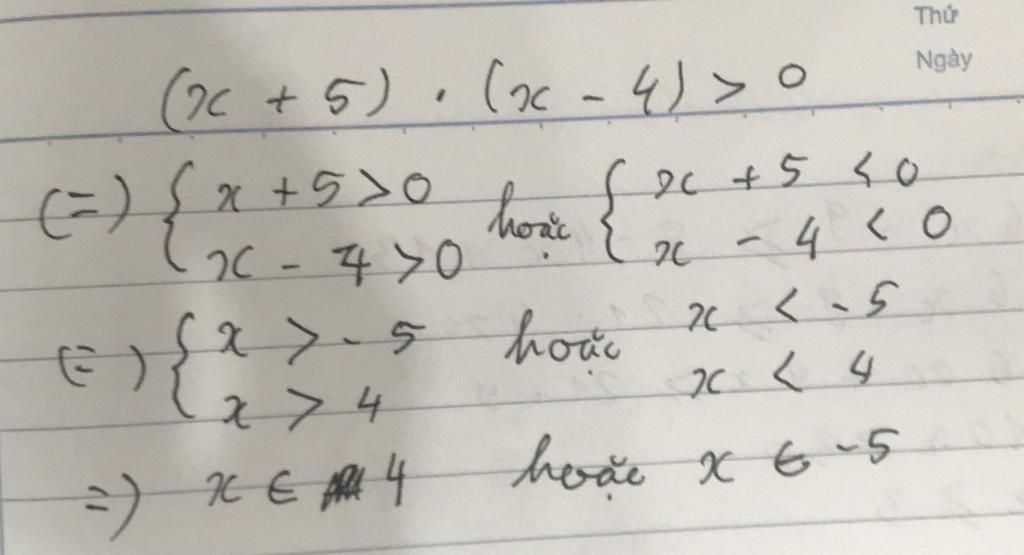 Thứ
Ngày
(x + 5) . (x - 4) > 0
(=) { x + 5 > 0 hoặc { x + 5 < 0
x - 4 > 0 x - 4 < 0
(=) { x > - 5 hoặc x < - 5
x > 4 x < 4
=) x ∈ 4 hoặc x ∈ -5